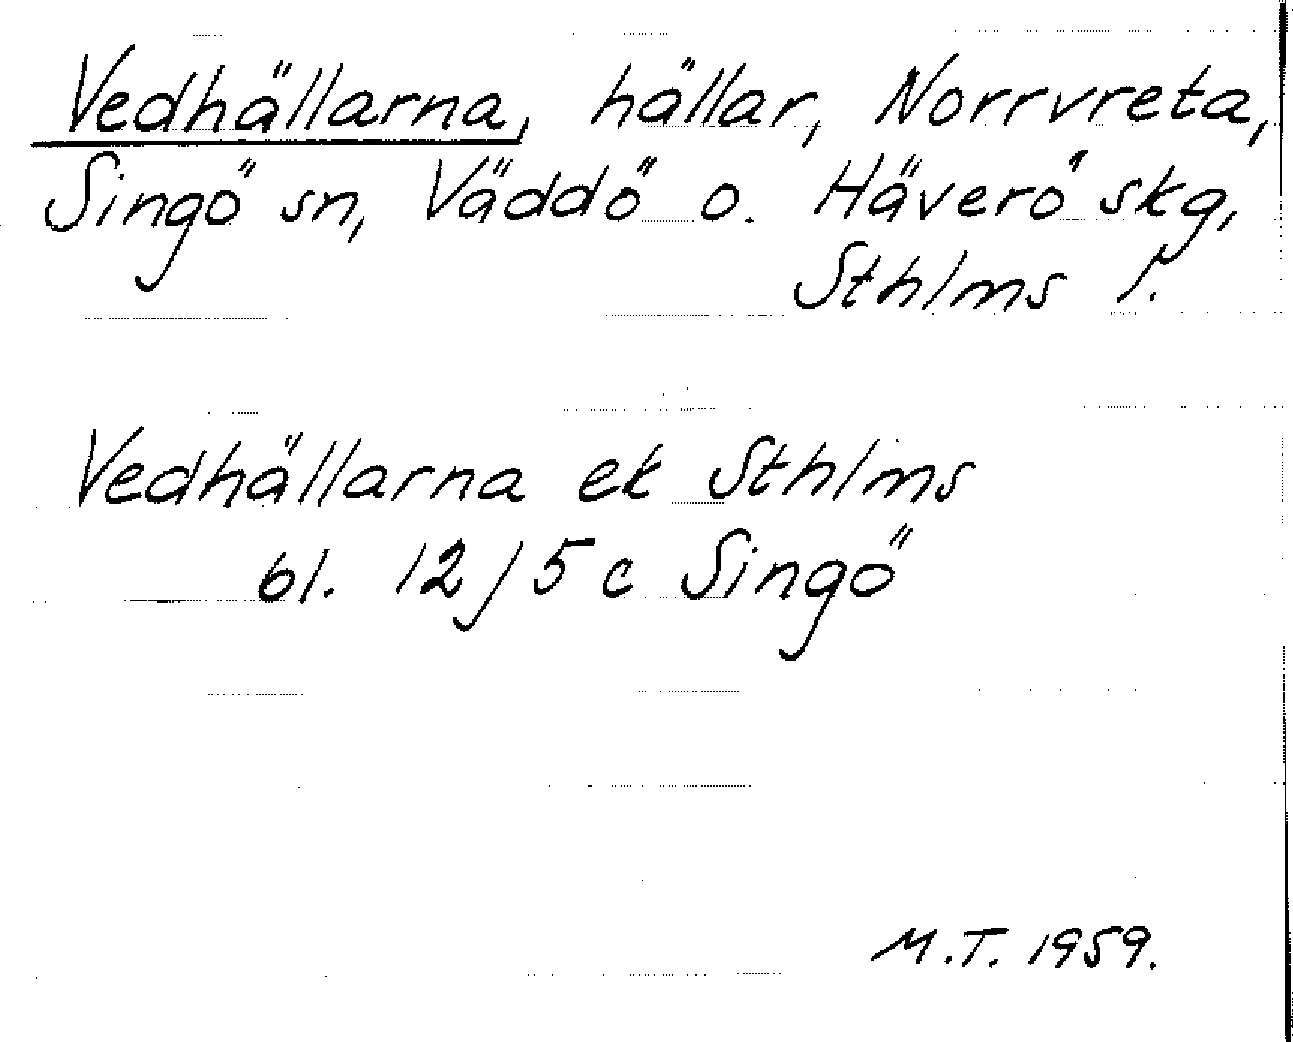 Vedhällarna, hällar, Norrvreta,
Singö sn, Väddö o. Häverö skg,
Sthlms l.
Vedhällarna ek Sthlms
bl. 12/5 c Singö
M.T. 1959.